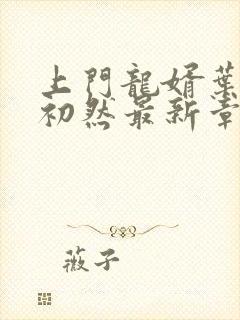 上門龍婿葉
初然最新章
薇子